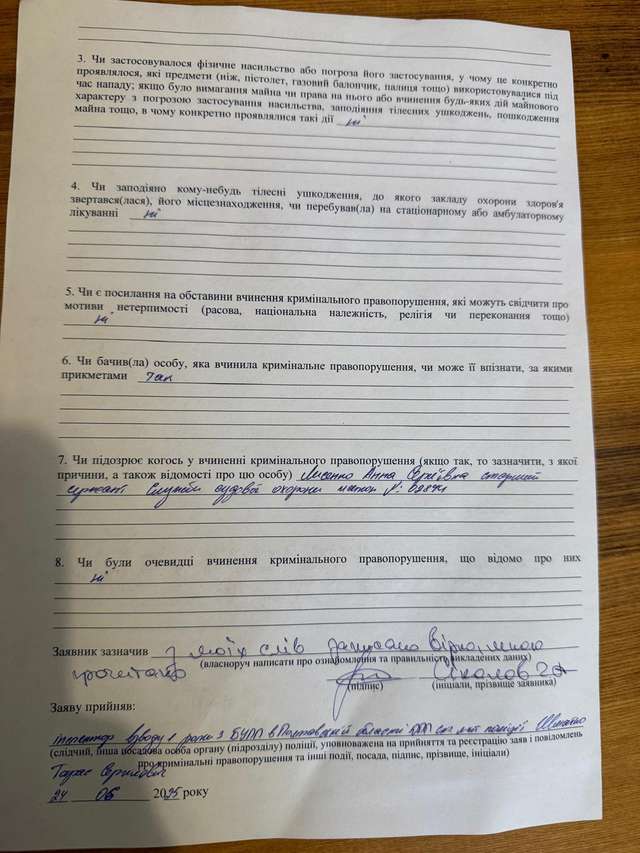 3. Чи застосовувалося фізичне насильство або погроза його застосування, у чому це конкретно
проявлялося, які предмети (ніж, пістолет, газовий балончик, палиця тощо) використовувалися під
час нападу; якщо було вимагання майна чи права на нього або вчинення будь-яких дій майнового
характеру з погрозою застосування насильства, заподіяння тілесних ушкоджень, пошкодження
майна тощо, в чому конкретно проявлялися такі дії ні
4. Чи заподіяно кому-небудь тілесні ушкодження, до якого закладу охорони здоров'я
звертався(лася), його місцезнаходження, чи перебував(ла) на стаціонарному або амбулаторному
лікуванні ні
5. Чи є посилання на обставини вчинення кримінального правопорушення, які можуть свідчити про
мотиви нетерпимості (расова, національна належність, релігія чи переконання тощо)
ні
6. Чи бачив(ла) особу, яка вчинила кримінальне правопорушення, чи може її впізнати, за якими
прикметами так
7. Чи підозрює когось у вчиненні кримінального правопорушення (якщо так, то зазначити, з якої
причини, а також відомості про цю особу) Анна Сергіївна старший
сержант Служби судової охорони жетон №
8. Чи були очевидці вчинення кримінального правопорушення, що відомо про них
ні
Заявник зазначив з моїх слів записано вірно, мною
прочитано
(власноруч написати про ознайомлення та правильність викладених даних)
(підпис) (ініціали, прізвище заявника)
Заяву прийняв:
інспектор взводу 1 роти 3 БУПП в Полтавській області ДПП поліції
(слідчий, інша посадова особа органу (підрозділу) поліції, уповноважена на прийняття та реєстрацію заяв і повідомлень
про кримінальні правопорушення та інші події, посада, підпис, прізвище, ініціали)
Тарас Сергійович
24 06 2025 року